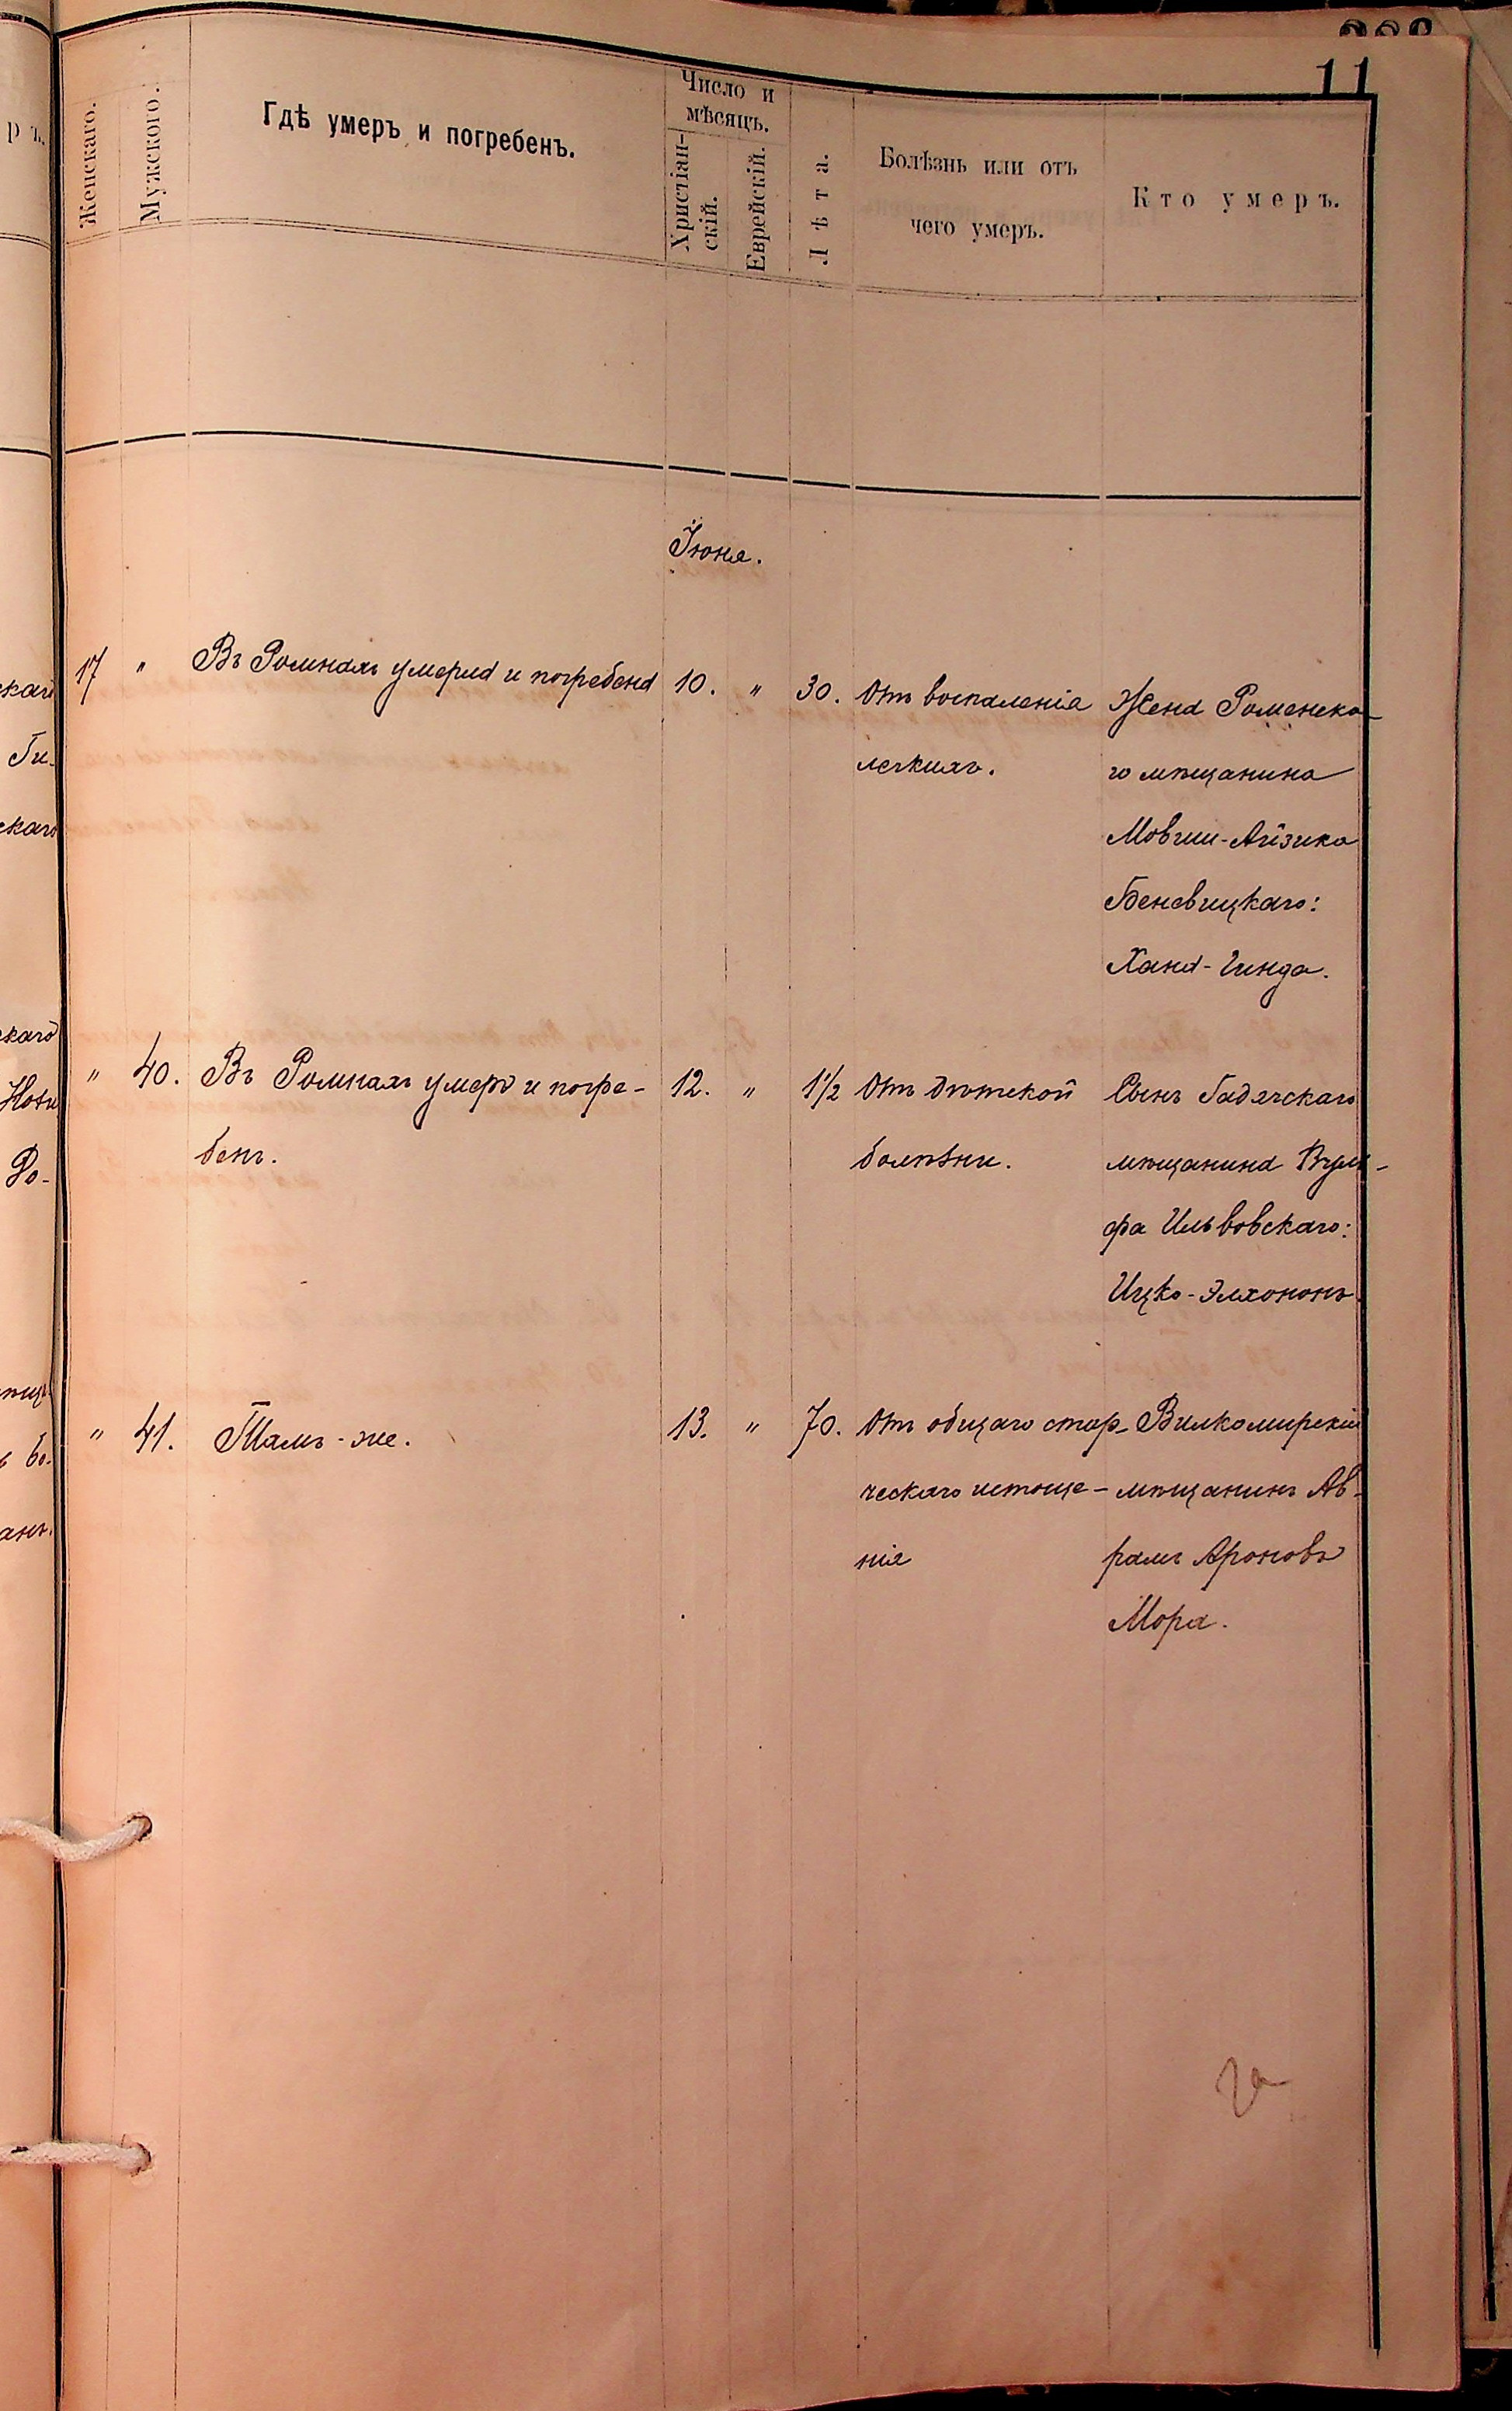 11
Женскаго.
Мужского.
Гдѣ умеръ и погребенъ.
Число и
мѣсяцъ.
Христіан-
скій.
Еврейскій.
Лѣта.
Болѣзнь или отъ
чего умеръ.
Кто умеръ.
Іюня.
17 " Въ Ромнахъ умерла и погребена 10. " 30. Отъ воспаленія Жена Роменска-
легкихъ. го мѣщанина
Мовши-Айзика
Беневицкаго:
Хана-Гинда.
" 40. Въ Ромнахъ умеръ и погре- 12. " 1½ Отъ дѣтской Сынъ Гадячскаго
бенъ. болѣзни. мѣщанина Вуль-
фа Ильвовскаго:
Ицко-Элхононъ
" 41. Тамъ-же. 13. " 70. Отъ общаго стар- Вилкомирскій
ческаго истоще- мѣщанинъ Ав-
нія рамъ Ароновъ
Мора.
скаго
Ги-
скаго
скаго
Ро-
анъ.